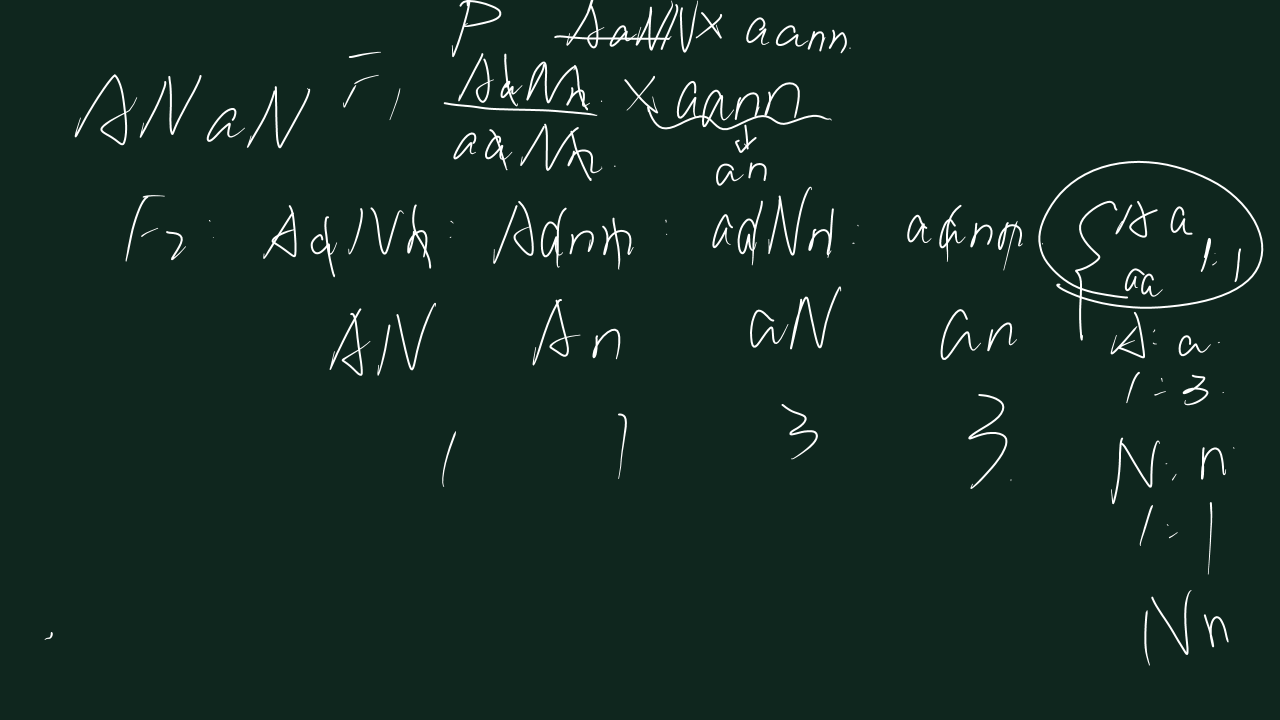 P AaNN × aann
ANaN F₁ AaNn × aann
aaNn an
F₂: AaNn : Aann : aaNn : aann
Aa
aa 1:1
AN An aN an
A: a
1:3
1 1 3 3
N: n
1:1
Nn